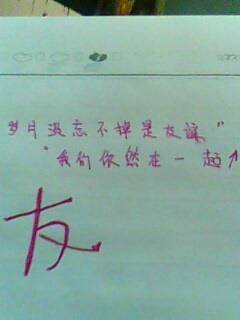 岁月淡忘不掉是友谊”
“我们依然在一起↑
友